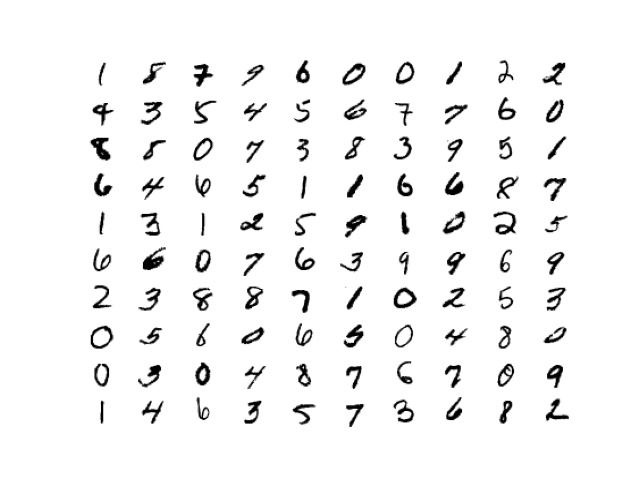 1 8 7 9 6 0 0 1 2 2
4 3 5 4 5 6 7 7 6 0
8 8 0 7 3 8 3 9 5 1
6 4 6 5 1 1 6 6 8 7
1 3 1 2 5 9 1 0 2 5
6 6 0 7 6 3 9 9 6 9
2 3 8 8 7 1 0 2 5 3
0 5 6 0 6 5 0 4 8 0
0 3 0 4 8 7 6 7 0 9
1 4 6 3 5 7 3 6 8 2